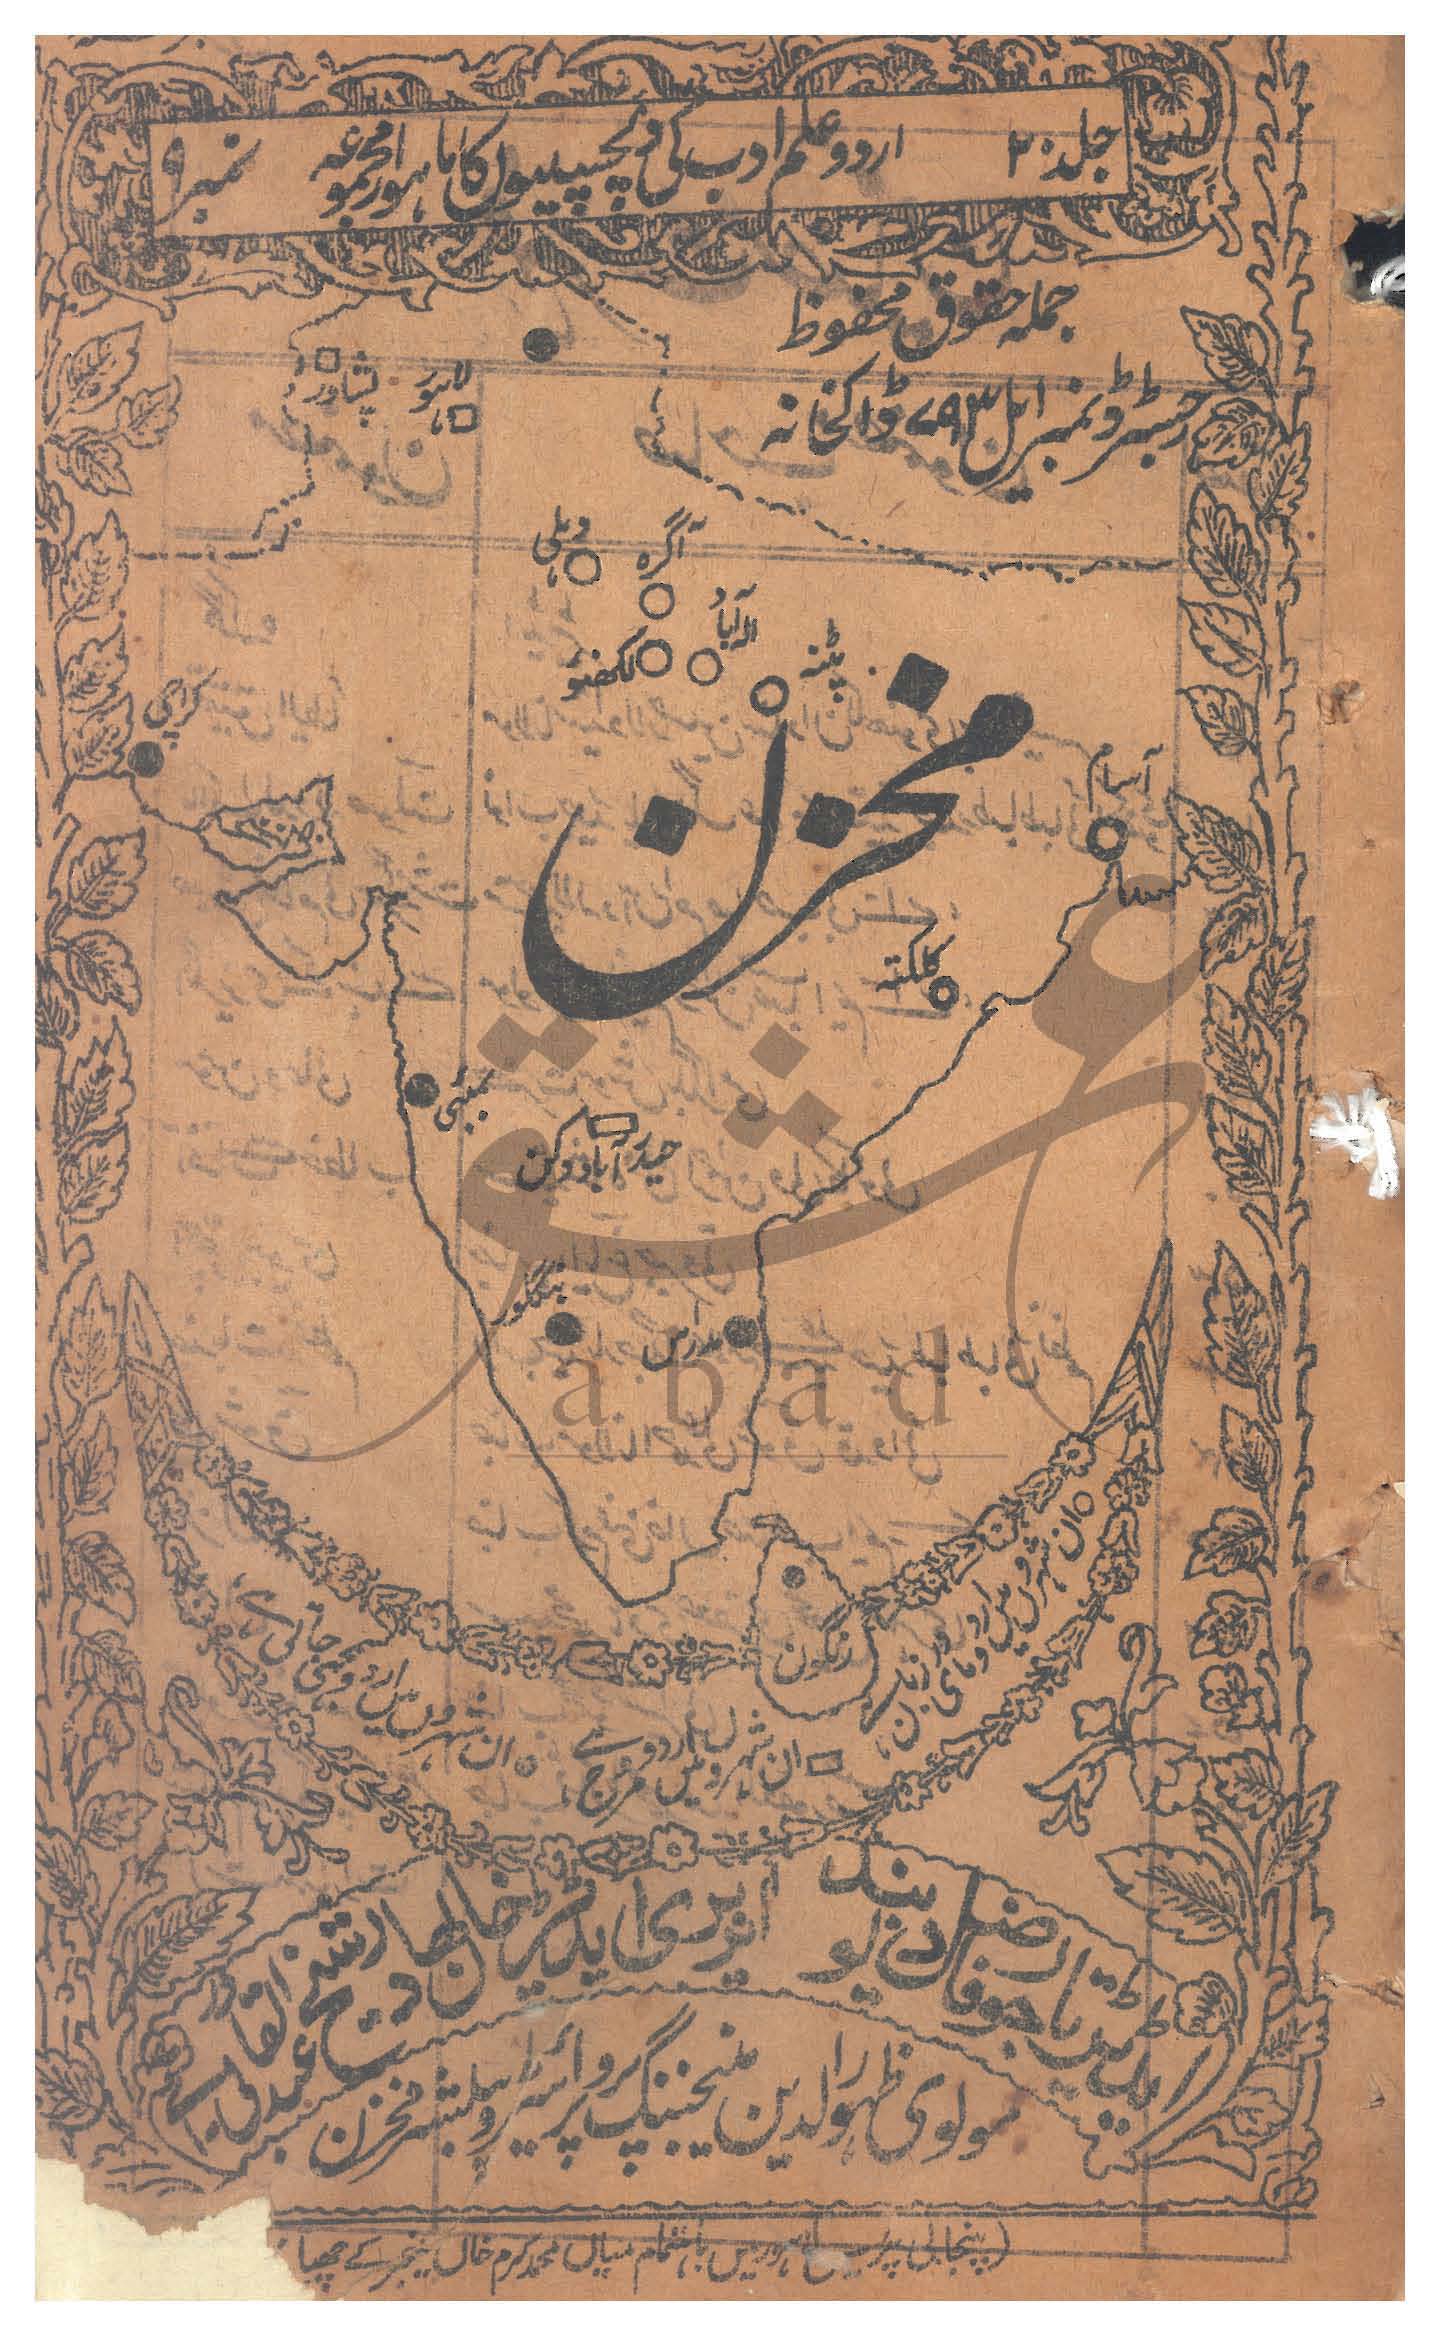 جلد ۲۰ اردو علم ادب کی دلچسپیوں کا ماہوار مجموعہ نمبر ۹
جملہ حقوق محفوظ
رجسٹرڈ نمبر ایل ۷۹۳ ڈاکخانہ
پشاور لاہور
دہلی آگرہ
الہ آباد
لکھنؤ پٹنہ
کراچی
مخزن
آسام
کلکتہ
بمبئی
حیدرآباد دکن
بنگلور
مدراس
رنگون
ان شہروں میں اردو
ان شہروں میں اردو مروج ہے
ان شہروں میں اردو سمجھی جاتی ہے
ایڈیٹر تاجور فاضل دیوبند
آنریری ایڈیٹر خان بہادر شیخ عبدالقادر بی اے
مولوی ظہور الدین منیجنگ پروپرائٹر و پبلشر مخزن
(پنجابی پریس لاہور میں باہتمام میاں محمد کرم خاں منیجر کے چھپا
abad